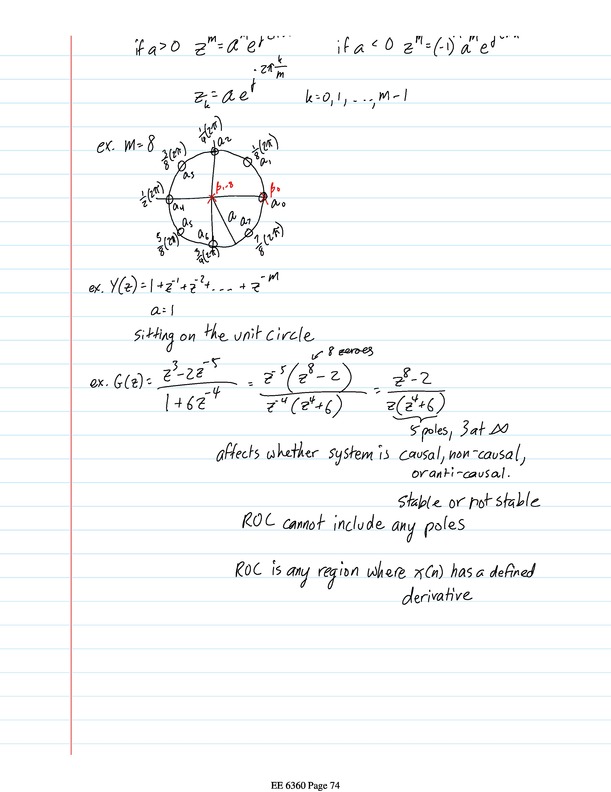 if a>0 z^m = a^m e^j if a<0 z^m = (-1) a^m e^j
z_k = a e^{j 2π k/m} k=0, 1, ..., m-1
ex. m=8
1/4(2π)
3/8(2π) a_2 1/8(2π)
a_3 a_1
1/2(2π) a_4 p_1-8 p_0 a_0
a_5 a_6 a a_7
5/8(2π) 3/4(2π) 7/8(2π)
ex. Y(z) = 1 + z^-1 + z^-2 + .... + z^-m
a=1
sitting on the unit circle
8 zeroes
ex. G(z) = (z^3 - 2z^-5)/(1 + 6z^-4) = (z^-5 (z^8 - 2))/(z^-4 (z^4 + 6)) = (z^8 - 2)/(z(z^4 + 6))
5 poles, 3 at ∞
affects whether system is causal, non-causal,
or anti-causal.
stable or not stable
ROC cannot include any poles
ROC is any region where x(n) has a defined
derivative
EE 6360 Page 74